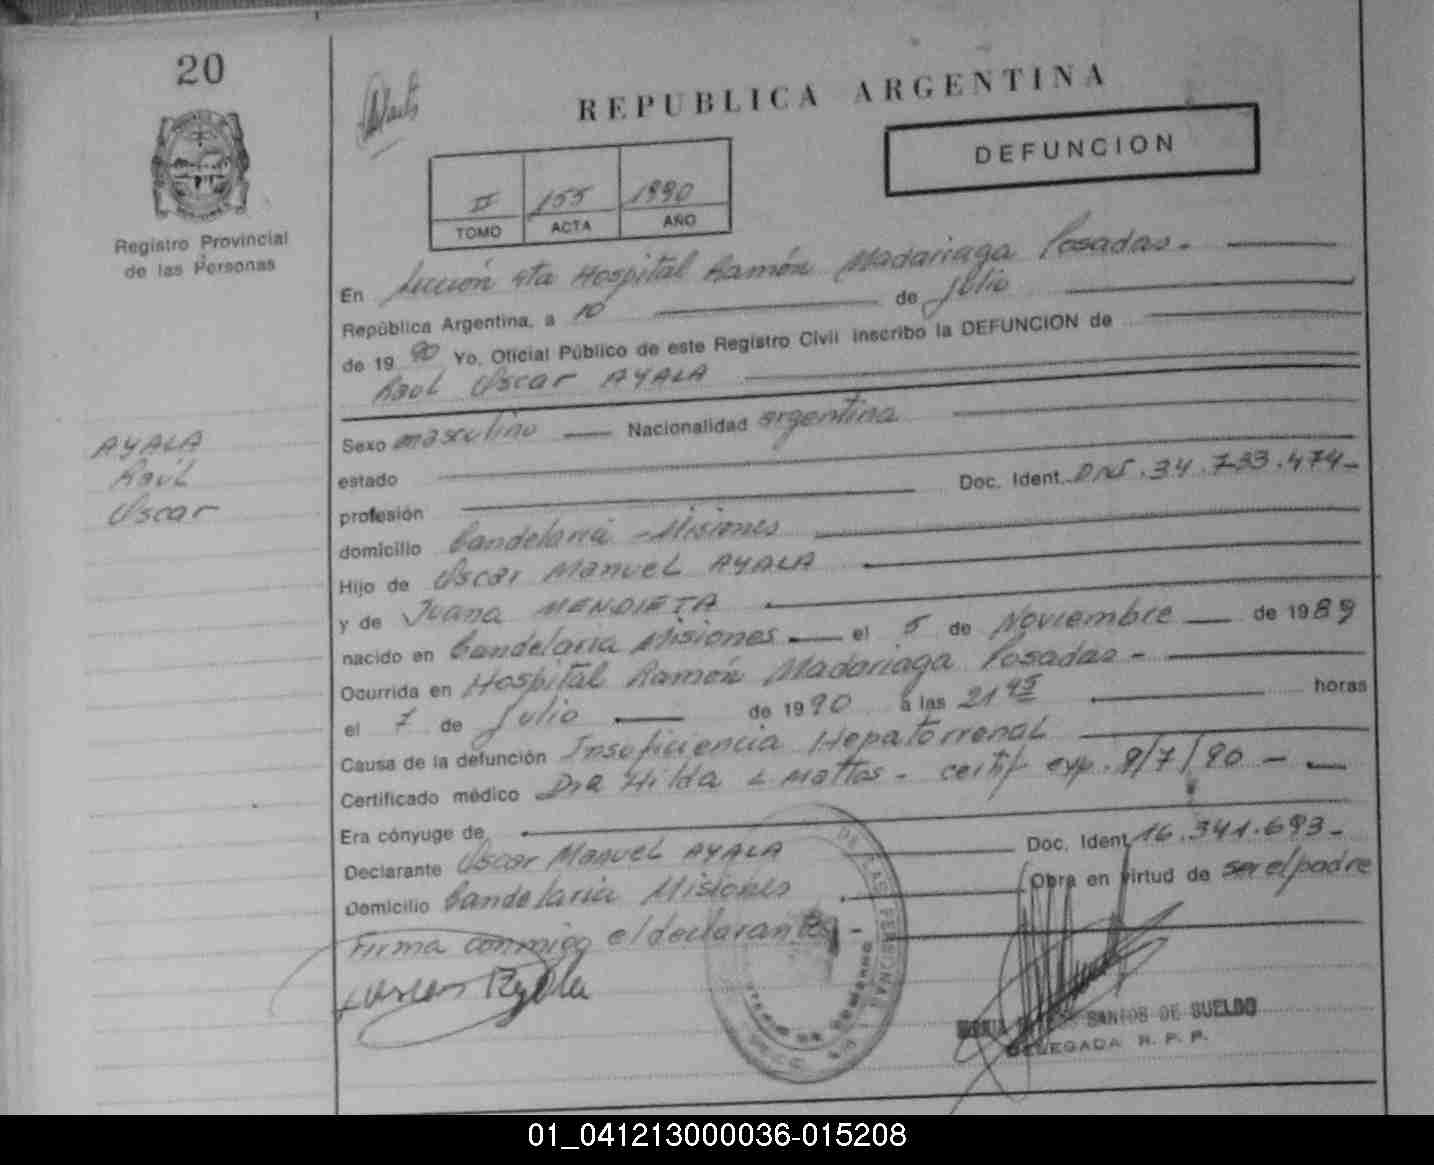 20
Registro Provincial
de las Personas
REPUBLICA ARGENTINA
DEFUNCION
II 155 1990
TOMO ACTA AÑO
En Sección 4ta Hospital Ramón Madariaga Posadas.-
República Argentina, a 10 de julio
de 1990 Yo, Oficial Público de este Registro Civil inscribo la DEFUNCION de
Raúl Oscar AYALA
AYALA
Raúl
Oscar
Sexo masculino Nacionalidad argentina
estado
profesión Doc. Ident. DNI.34.733.474-
domicilio Candelaria - Misiones
Hijo de Oscar Manuel AYALA
y de Juana MENDIETA
nacido en Candelaria Misiones el 5 de Noviembre de 1989
Ocurrida en Hospital Ramón Madariaga Posadas-
el 7 de Julio de 1990 a las 21 45 horas
Causa de la defunción Insuficiencia Hepatorrenal
Certificado médico Dra Hilda L Mattos - certif exp. 8/7/90 -
Era cónyuge de
Declarante Oscar Manuel AYALA Doc. Ident. 16.341.693-
Domicilio Candelaria Misiones Obra en virtud de ser el padre
Firma conmigo el declarante
DE LAS PERSONAS
SANTOS DE SUELDO
DELEGADA R. P. P.
01_041213000036-015208